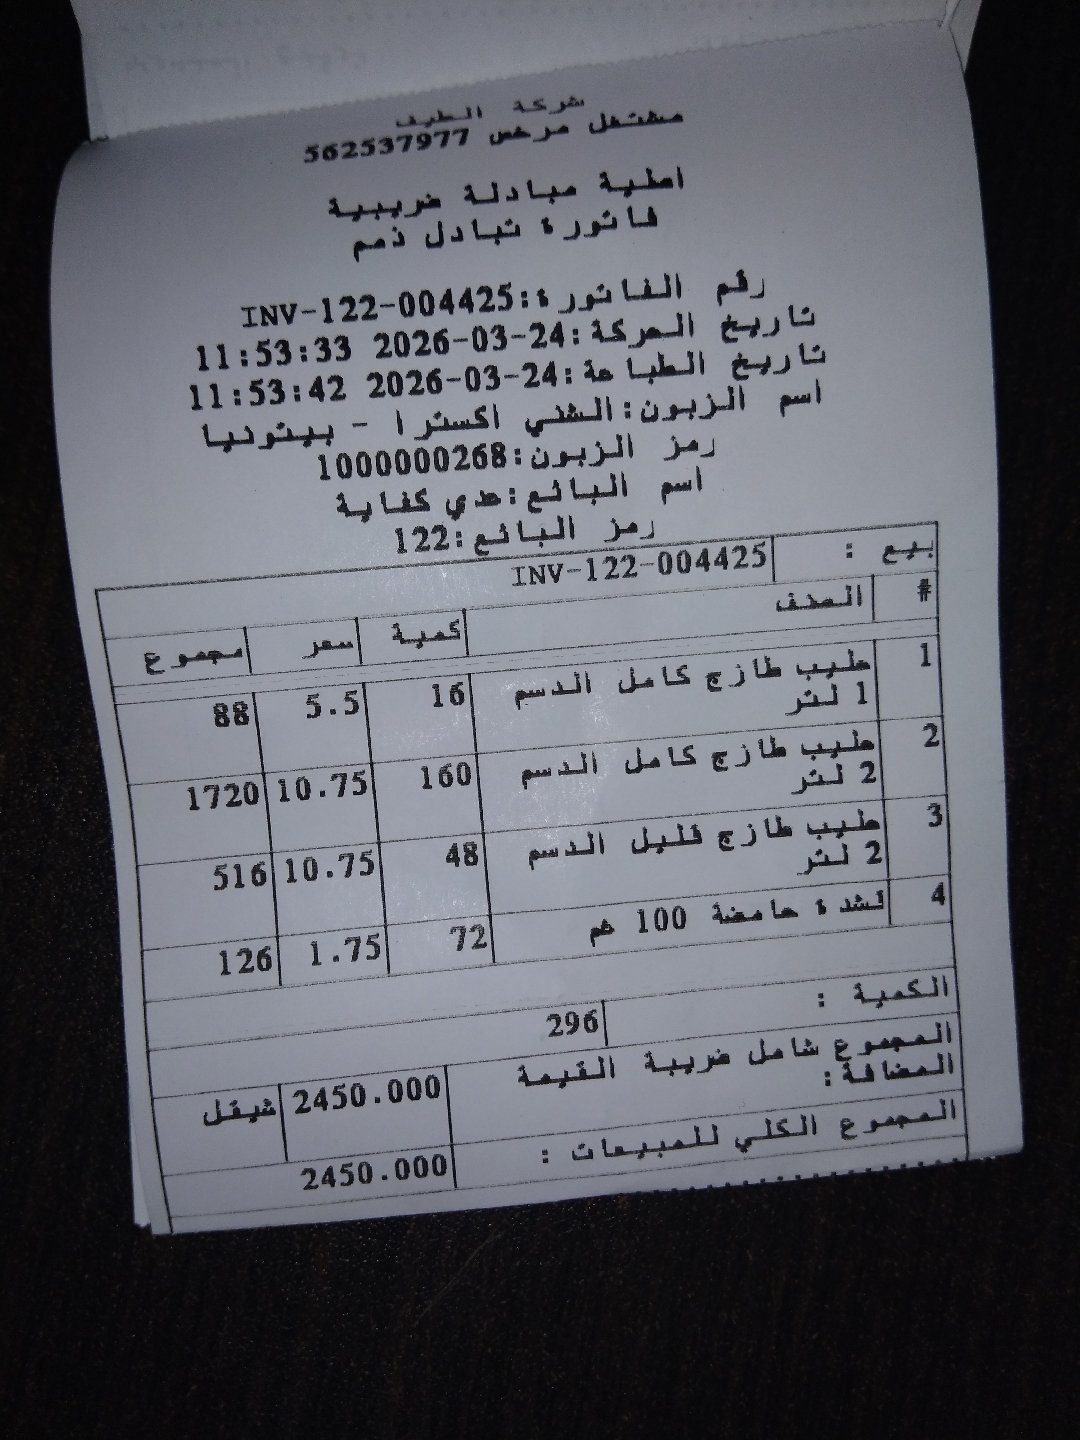 شركة الطيف
مشتغل مرخص 562537977
اصلية مبادلة ضريبية
فاتورة تبادل ذمم
رقم الفاتورة:INV-122-004425
تاريخ الحركة:2026-03-24 11:53:33
تاريخ الطباعة:2026-03-24 11:53:42
اسم الزبون:الشني اكسترا - بيتونيا
رمز الزبون:1000000268
اسم البائع:عدي كفاية
رمز البائع:122
بيع : INV-122-004425
# الصنف كمية سعر مجموع
1 حليب طازج كامل الدسم 16 5.5 88
1 لتر
2 حليب طازج كامل الدسم 160 10.75 1720
2 لتر
3 حليب طازج قليل الدسم 48 10.75 516
2 لتر
4 قشدة حامضة 100 غم 72 1.75 126
الكمية : 296
المجموع شامل ضريبة القيمة 2450.000 شيقل
المضافة:
المجموع الكلي للمبيعات : 2450.000